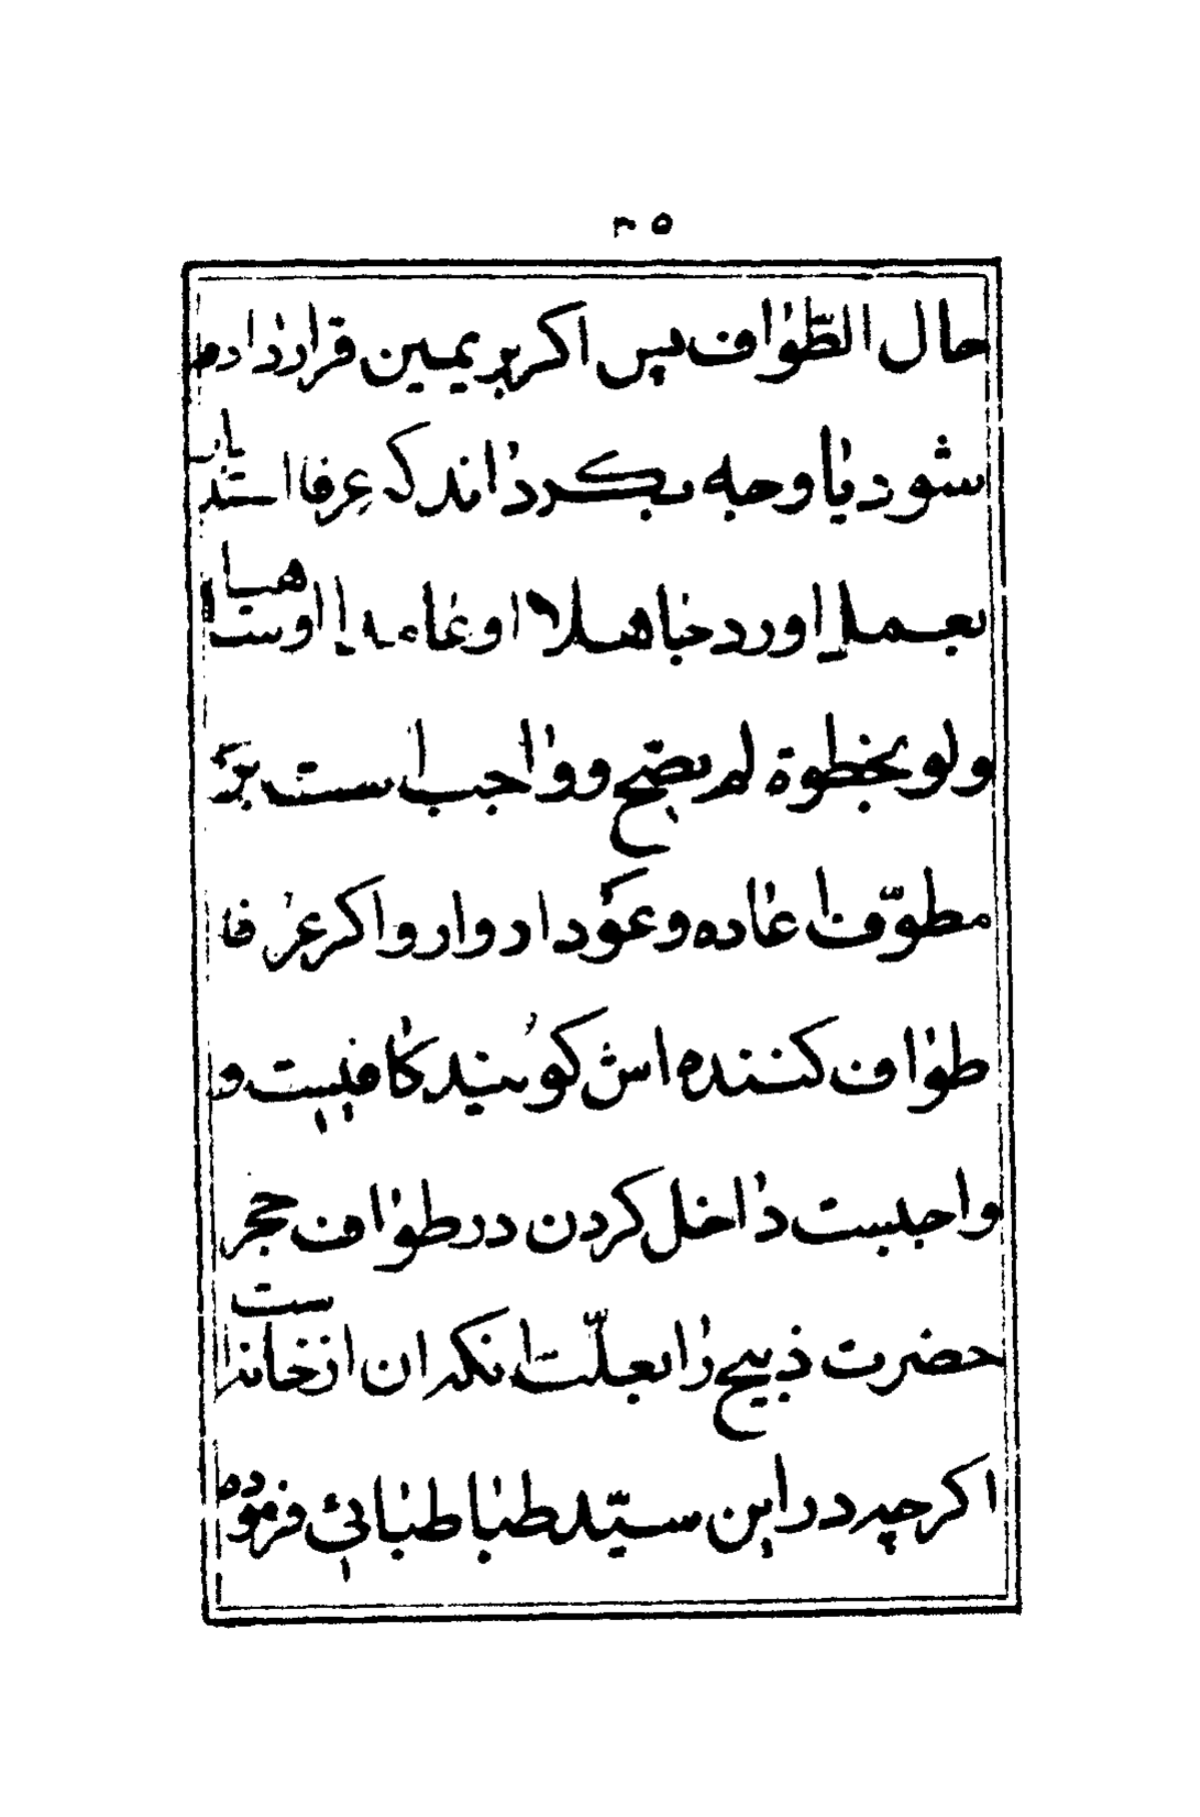 ۳۵
حال الطّواف پس اکر بر یمین قرار داده
شود یا وجه بکرداند که عرفا استدبار
بعمل اورد جاهلا او عامدا او ساهیا
ولو بخطوة لم یصّح و واجب است بر
مطوّف اعاده و عود ادوار و اکر عرفا
طواف کننده اش کویند کافیست و
واجبست داخل کردن در طواف حجر
حضرت ذبیح را بعلّت انکه ان از خانه است
اکرچه در این سیّد طباطبائی فرموده